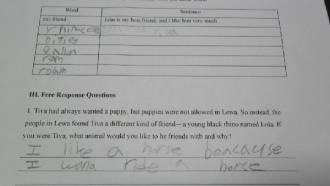 Word Sentence
ex) friend Lola is my best friend, and I like her very much.
rom
III. Free Response Questions
1. Tiva had always wanted a puppy, but puppies were not allowed in Lewa. So instead, the
people in Lewa found Tiva a different kind of friend—a young black rhino named Lola. If
you were Tiva, what animal would you like to be friends with and why?
I like a horse beacause
I wana ride a horse